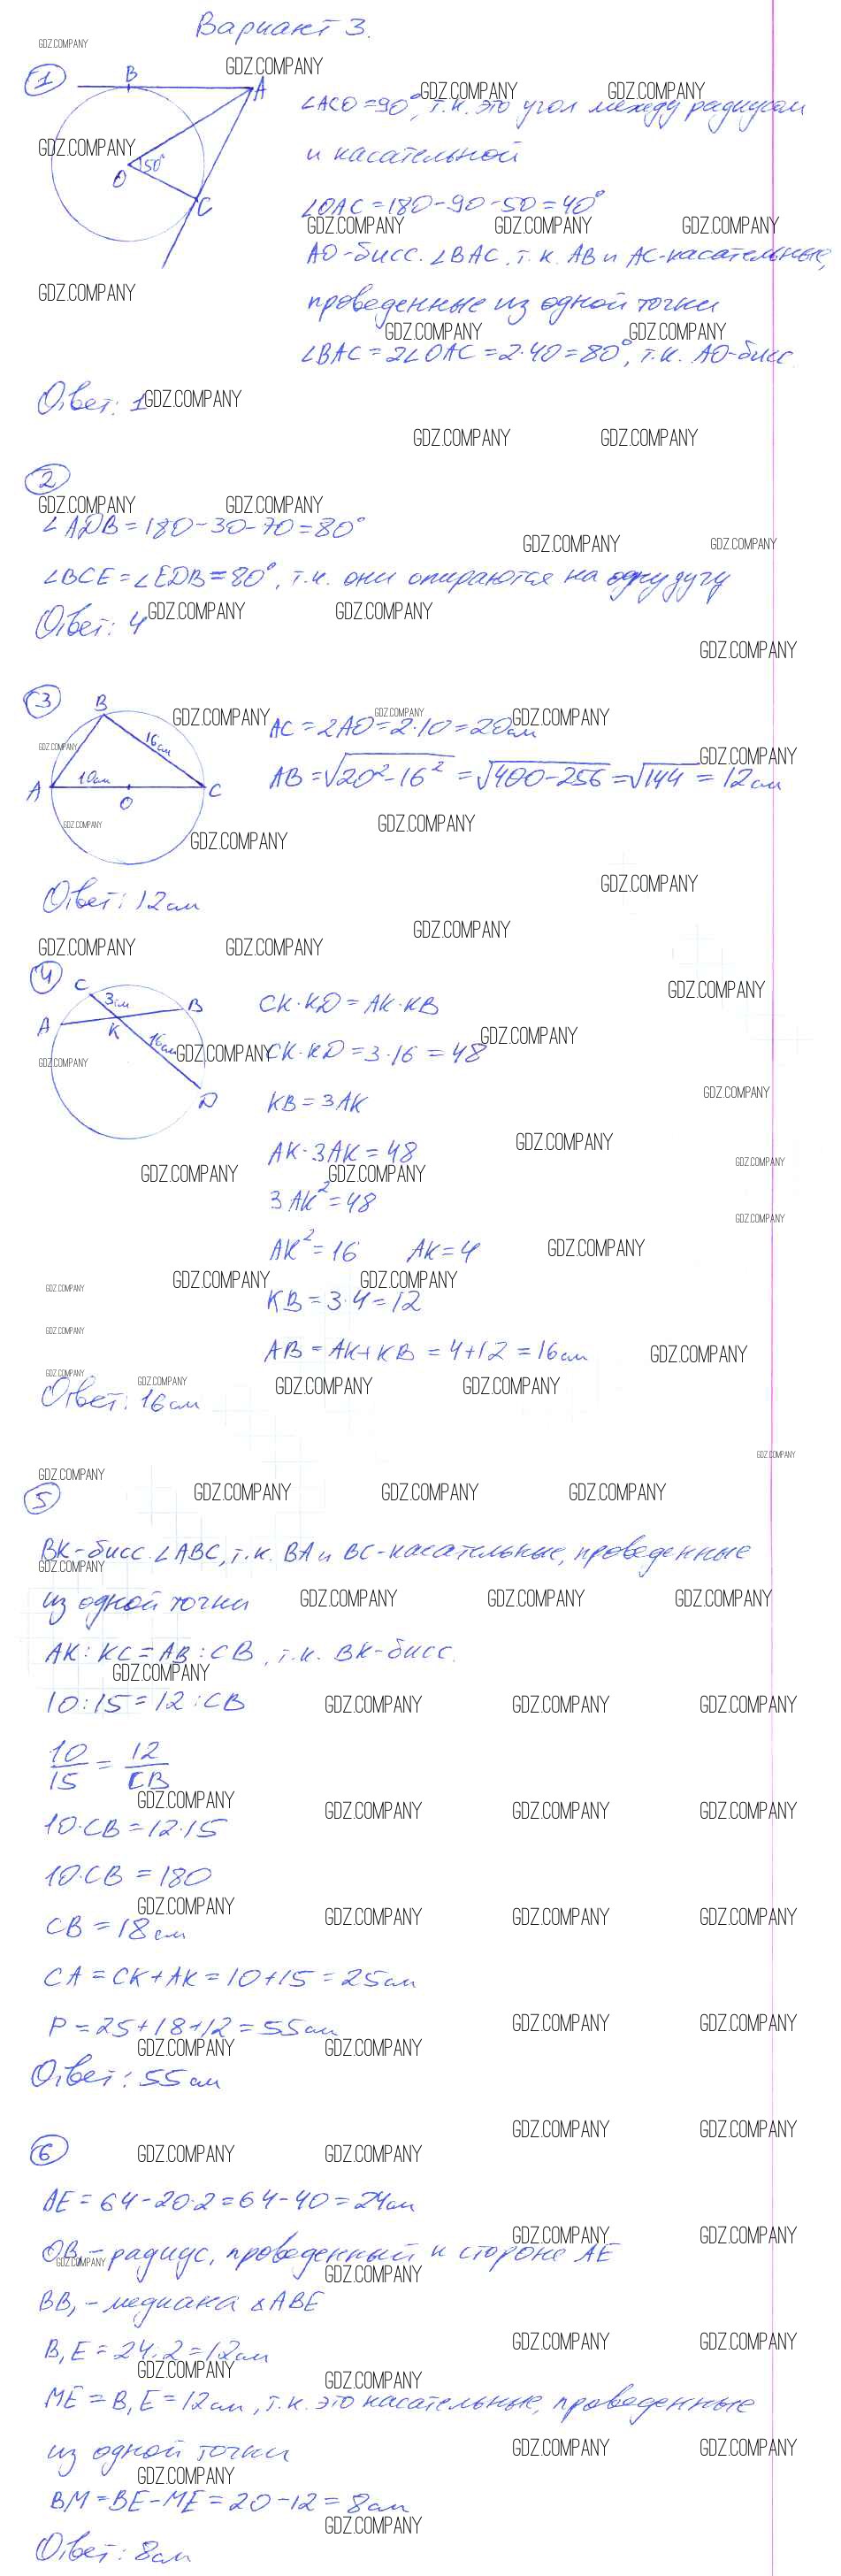 Вариант 3.
1
B
A
O
50°
C
∠ACO = 90°, т.к. это угол между радиусом
и касательной
∠OAC = 180-90-50=40°
AO-бисс. ∠BAC, т.к. AB и AC-касательные,
проведенные из одной точки
∠BAC = 2∠OAC = 2·40=80°, т.к. AO-бисс.
Ответ: 1
2
∠ADB=180-30-70=80°
∠BCE = ∠EDB=80°, т.к. они опираются на одну дугу
Ответ: 4
3
B
16см
A
10см
O
C
AC = 2AO = 2·10 = 20см
AB = √20²-16² = √400-256 = √144 = 12см
Ответ: 12см
4
C
3см
B
A
K
16см
D
CK·KD = AK·KB
CK·KD = 3·16 = 48
KB = 3AK
AK·3AK = 48
3AK² = 48
AK² = 16 AK = 4
KB = 3·4 = 12
AB = AK+KB = 4+12 = 16см
Ответ: 16см
5
BK-бисс. ∠ABC, т.к. BA и BC-касательные, проведенные
из одной точки
AK:KC = AB:CB, т.к. BK-бисс.
10:15 = 12:CB
10/15 = 12/CB
10·CB = 12·15
10·CB = 180
CB = 18см
CA = CK+AK = 10+15 = 25см
P = 25+18+12 = 55см
Ответ: 55см
6
AE = 64-20·2 = 64-40 = 24см
OB₁ - радиус, проведенный к стороне AE
BB₁ - медиана △ABE
B₁E = 24:2 = 12см
ME = B₁E = 12см, т.к. это касательные, проведенные
из одной точки
BM = BE-ME = 20-12 = 8см
Ответ: 8см
GDZ.COMPANY